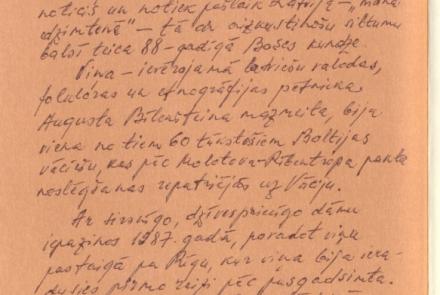 noticis un notiek pašlaik Latvijā – "manā
dzimtenē" – tā ar aizkustinošu siltumu
balsī teica 88-gadīgā Bošes kundze.
Viņa – ievērojamā latviešu valodas,
folkloras un etnogrāfijas pētnieka
Augusta Bīlenšteina mazmeita, bija
viena no tiem 60 tūkstošiem Baltijas
vāciešu, kas pēc Molotova-Ribentropa pakta
noslēgšanas repatriējās uz Vāciju.
Ar sirsnīgo, dzīvespriecīgo dāmu
iepazinos 1987. gadā, pavadot viņu
pastaigā pa Rīgu, kur viņa bija iera-
dusies pirmo reizi pēc pusgadsimta.